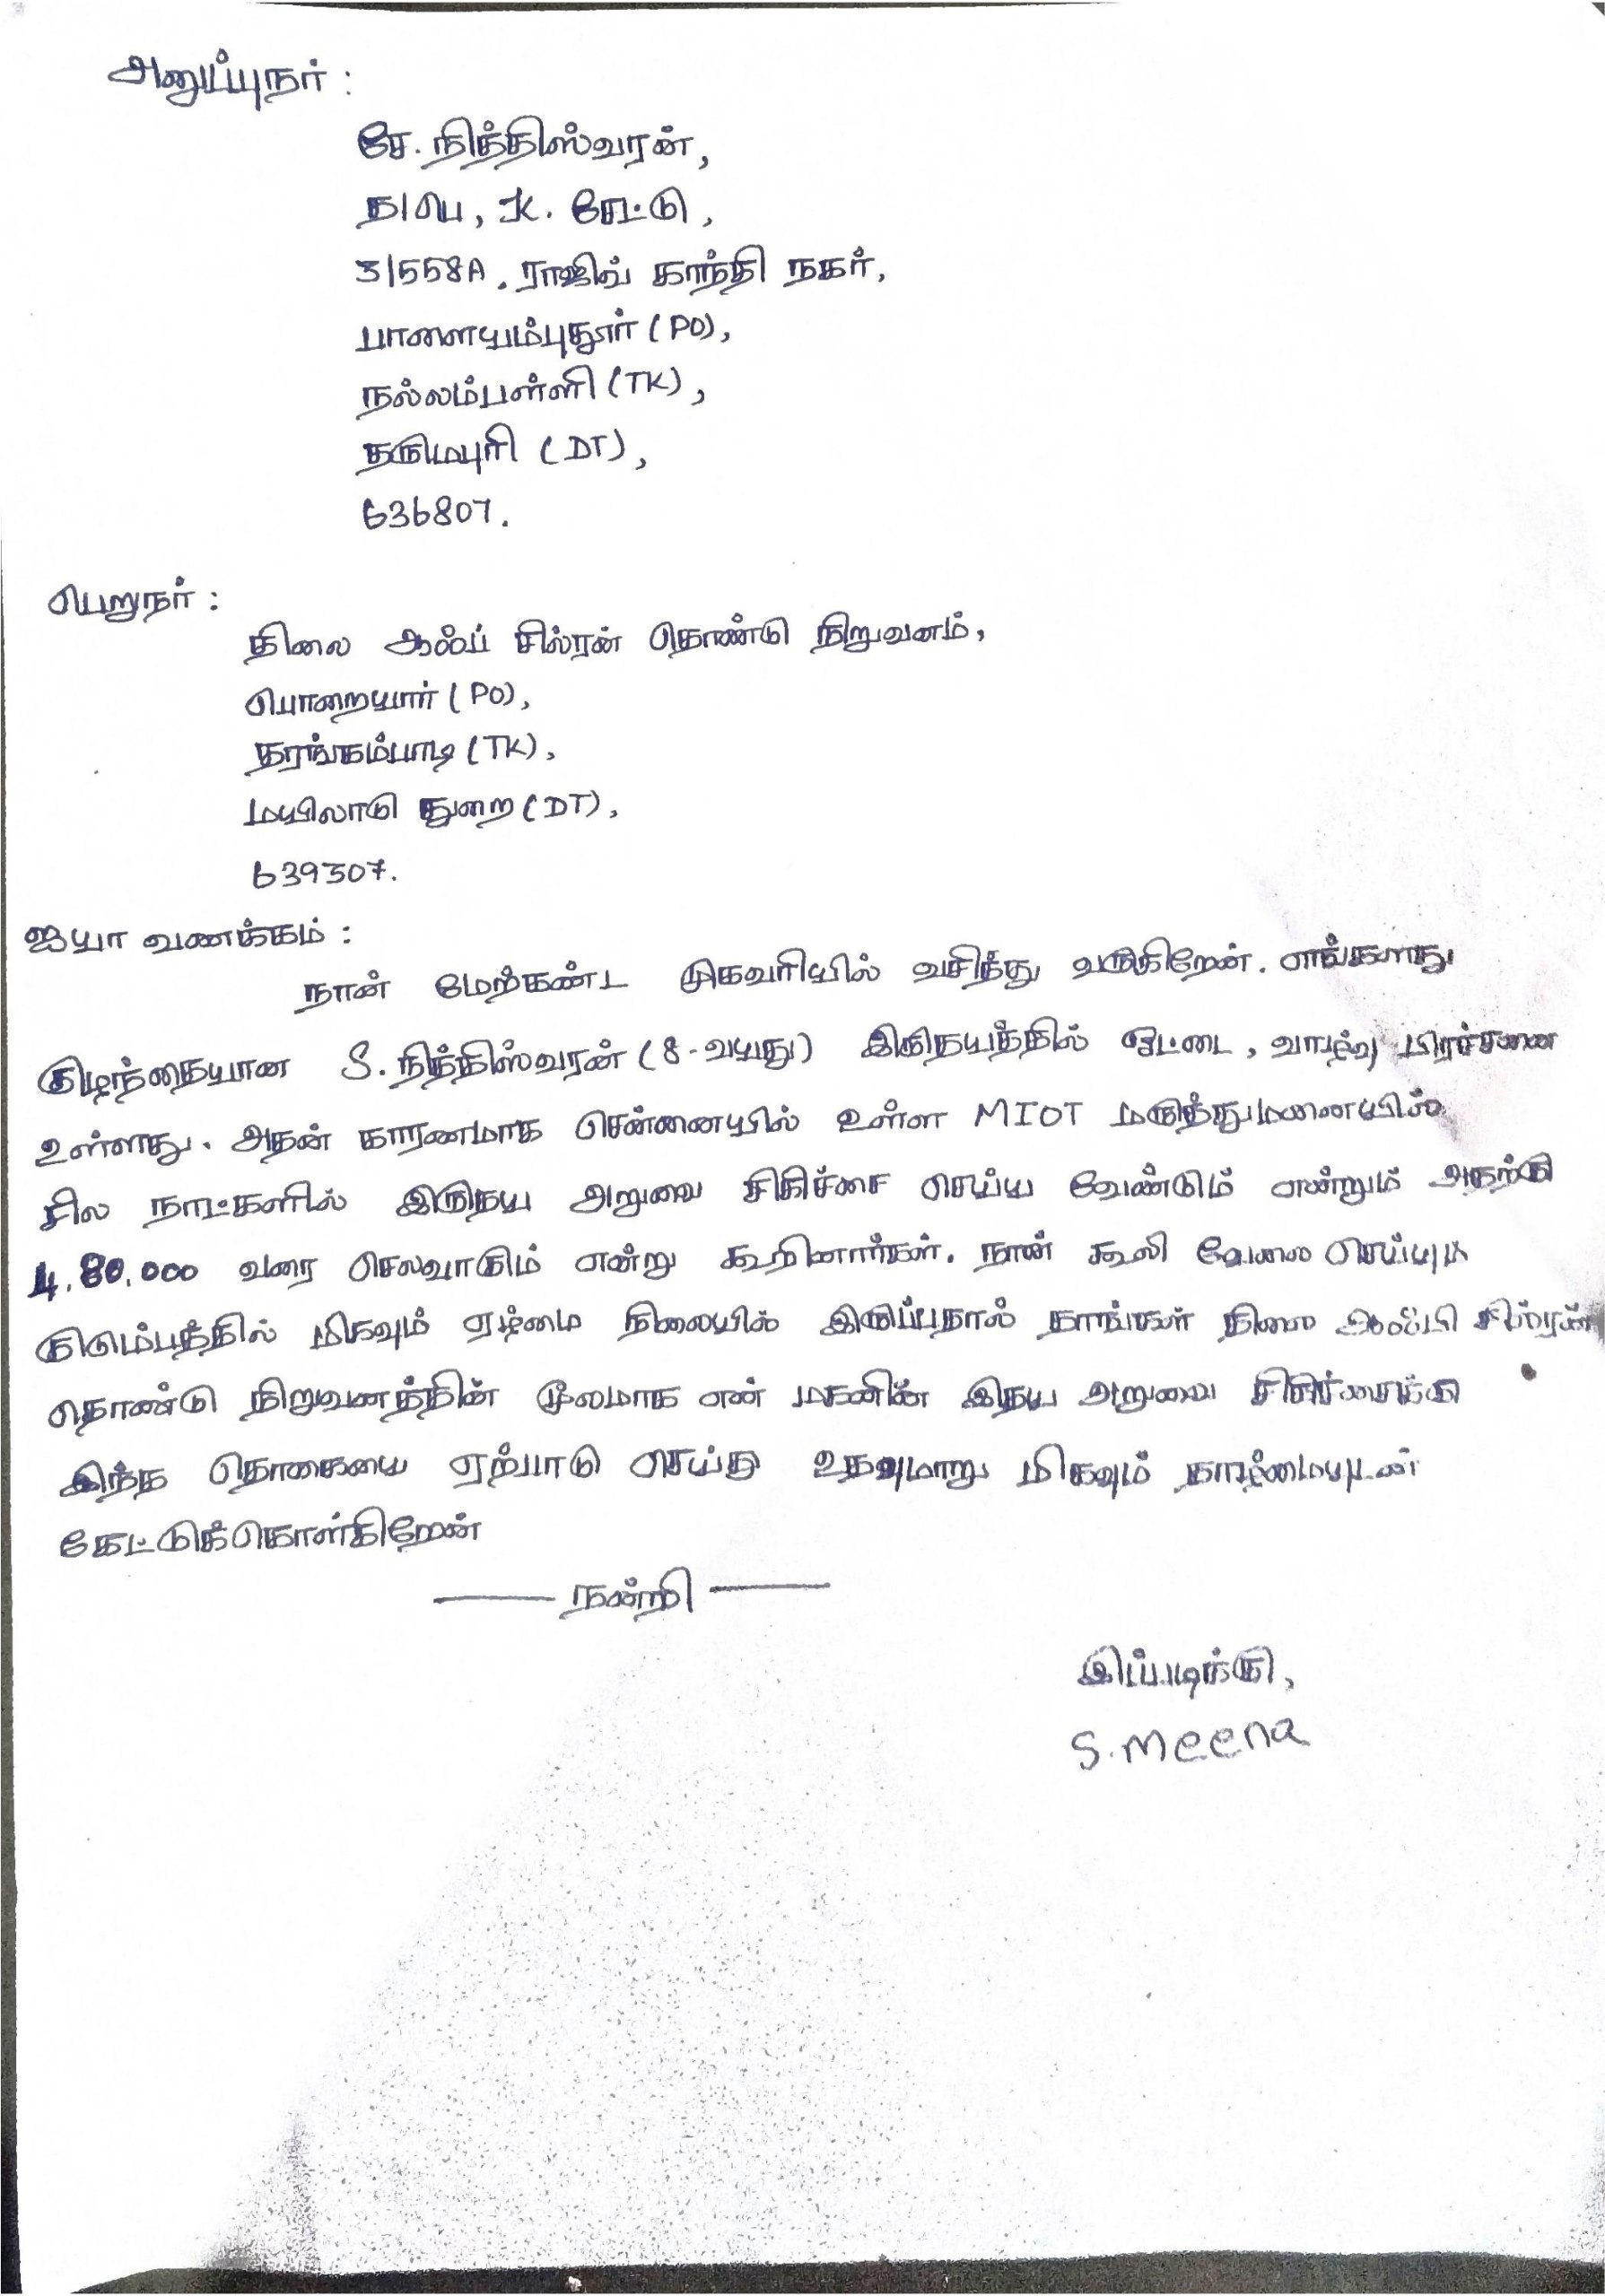 அனுப்புநர் :
சே. நித்திஸ்வரன்,
த/பெ, K. சேட்டு,
3/558A. ராஜிவ் காந்தி நகர்,
பாளையம்புதூர் (PO),
நல்லம்பள்ளி (TK),
தருமபுரி (DT),
636807.
பெறுநர் :
திலை ஆஃப் சில்ரன் தொண்டு நிறுவனம்,
பொறையார் (PO),
தரங்கம்பாடி (TK),
மயிலாடு துறை (DT),
639307.
ஐயா வணக்கம் :
நான் மேற்கண்ட முகவரியில் வசித்து வருகிறேன். எங்களது
குழந்தையான S. நித்திஸ்வரன் (8-வயது) இருதயத்தில் ஓட்டை, வால்வு பிரச்சனை
உள்ளது. அதன் காரணமாக சென்னையில் உள்ள MIOT மருத்துமனையில்
சில நாட்களில் இருதய அறுவை சிகிச்சை செய்ய வேண்டும் என்றும் அதற்கு
4,80,000 வரை செலவாகும் என்று கூறினார்கள். நான் கூலி வேலை செய்யும்
குடும்பத்தில் மிகவும் ஏழ்மை நிலையில் இருப்பதால் தாங்கள் திலை ஆஃப் சில்ரன்
தொண்டு நிறுவனத்தின் மூலமாக என் மகனின் இதய அறுவை சிகிச்சைக்கு
இந்த தொகையை ஏற்பாடு செய்து உதவுமாறு மிகவும் தாழ்மையுடன்
கேட்டுக்கொள்கிறேன்
நன்றி
இப்படிக்கு,
S. Meena